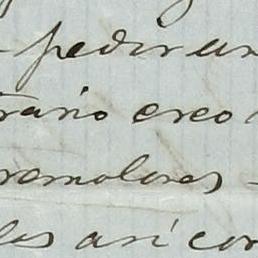 pedir un
rario creo
remolores -
las así cor